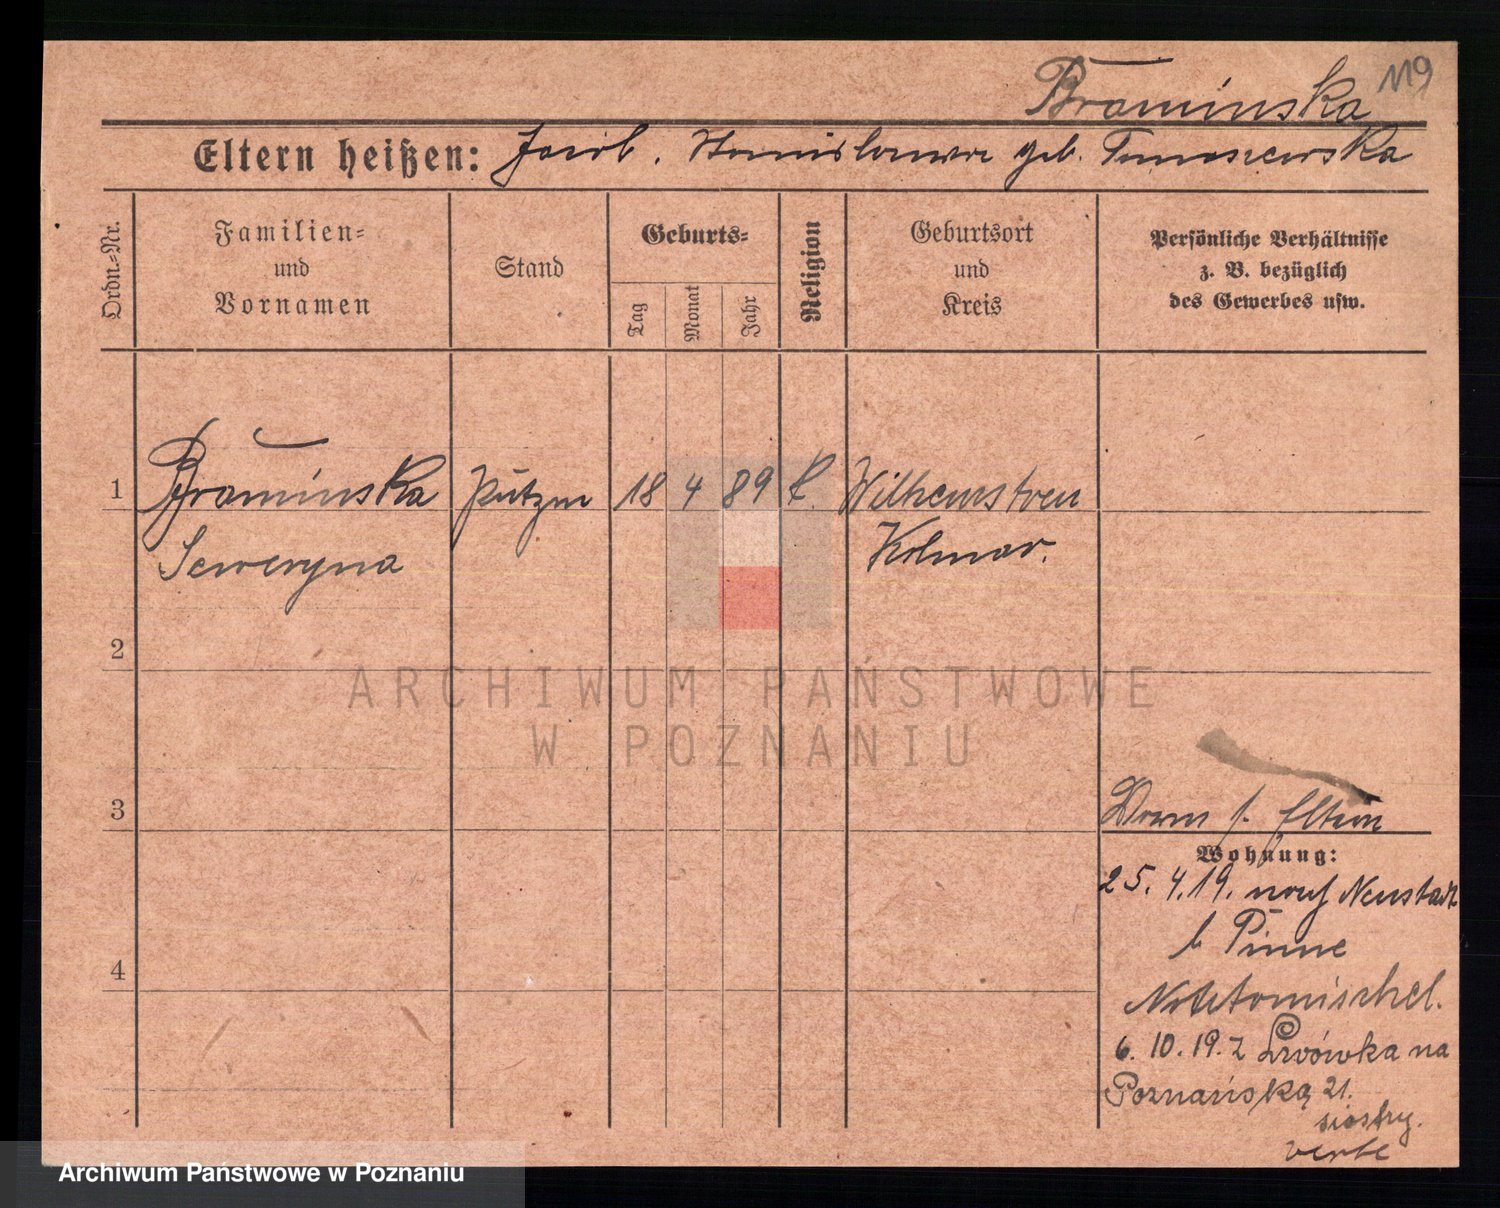 119
Braminska
Eltern heißen: Jacob. Stanislawa geb. Tomaszewska
Ordn.-Nr.
Familien-
und
Vornamen
Stand
Geburts-
Tag
Monat
Jahr
Religion
Geburtsort
und
Kreis
Persönliche Verhältnisse
z. B. bezüglich
des Gewerbes usw.
1 Braminska Putzm 18 4 89 k. Wilhelmstreu
Seweryna Kolmar.
2
3
4
Dram s. Eltern
Wohnung:
25.4.19. nach Neustadt
b Pinne
6.10.19. z Lwówka na
Poznańską 21.
siostry.
ARCHIWUM PAŃSTWOWE
W POZNANIU
Archiwum Państwowe w Poznaniu